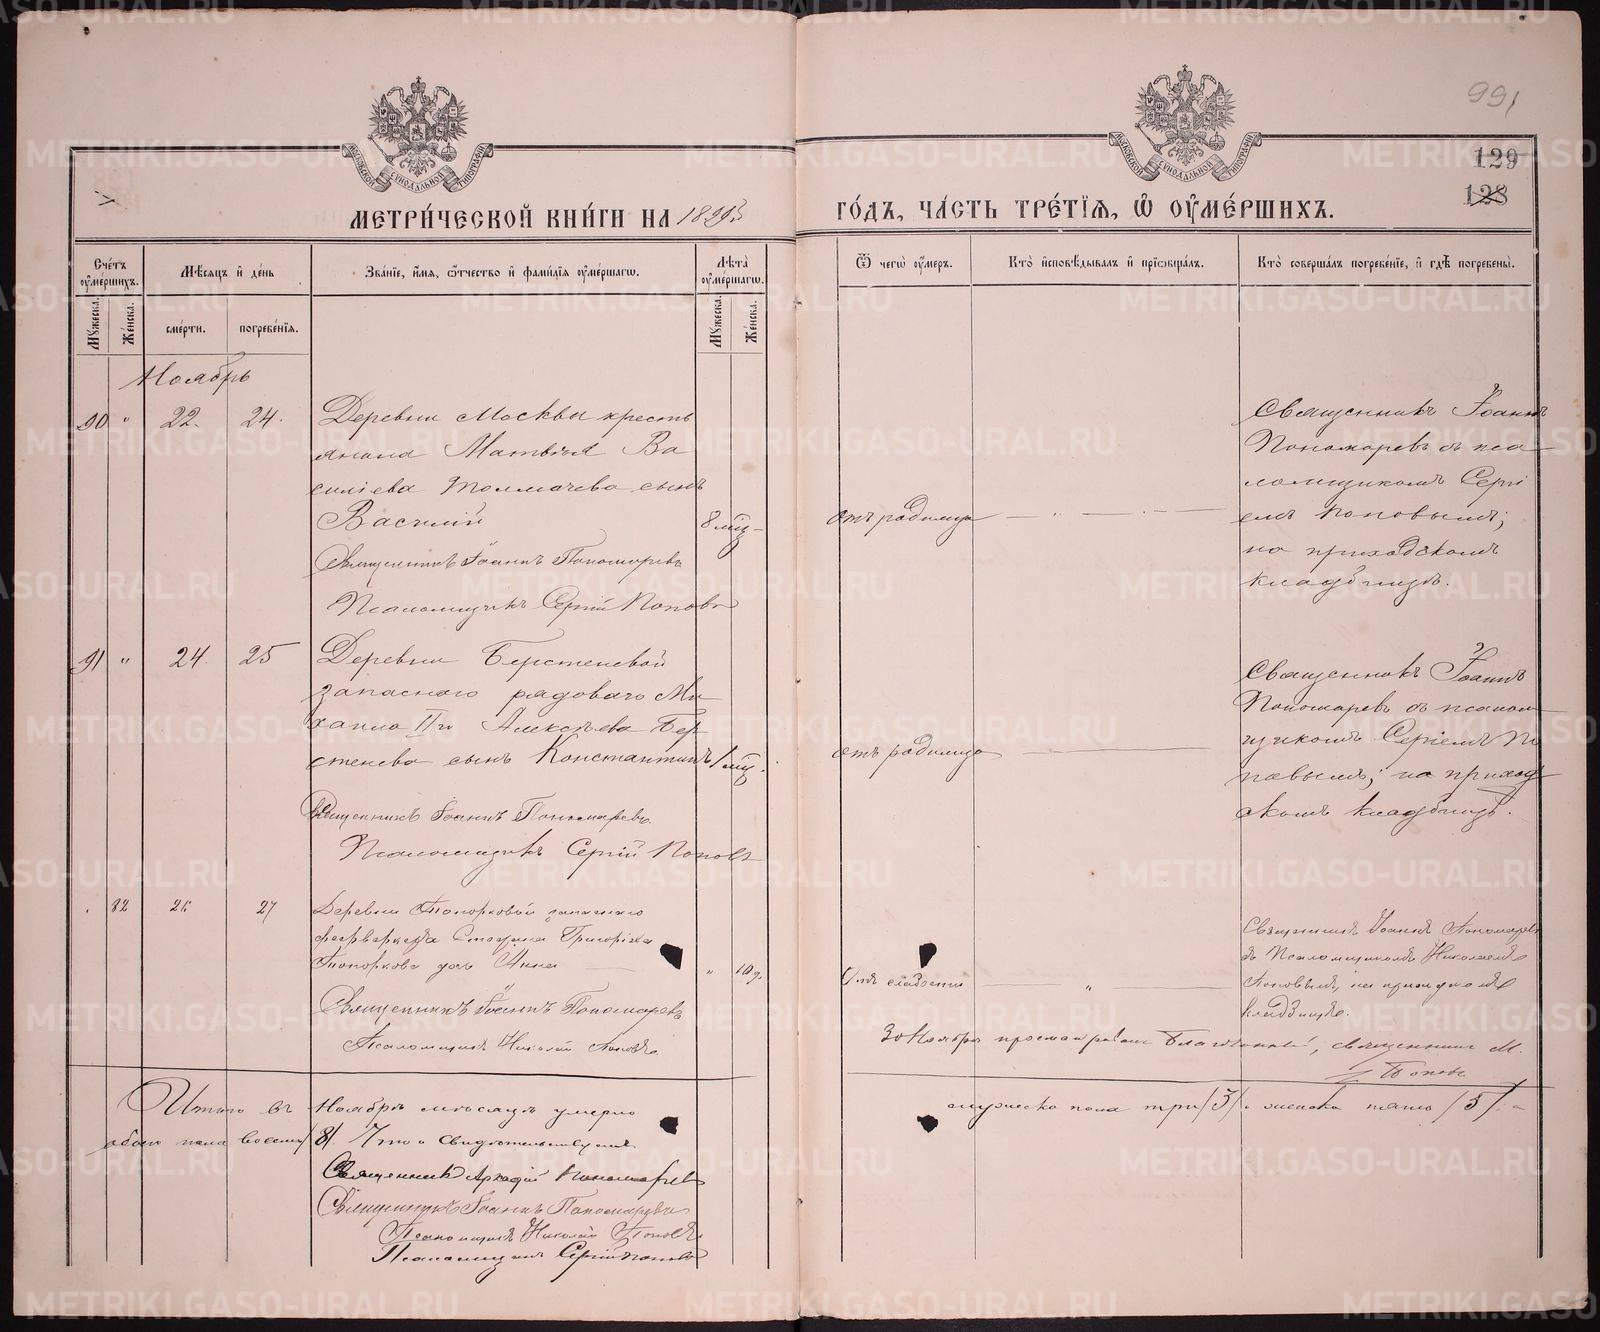 99,
129
128
МЕТРИ́ЧЕСКОЙ КНИ́ГИ НА 1893
ГО́ДЪ, ЧА́СТЬ ТРЕ́ТЇѦ, Ѡ҆ ОУ҆МЕ́РШИХЪ.
МОСКОВСКОЙ СѴНОДАЛЬНОЙ ТИПОГРАФІИ
МОСКОВСКОЙ СѴНОДАЛЬНОЙ ТИПОГРАФІИ
Сче́тъ оу҆ме́ршихъ.
Мꙋ́жеска.
Же́нска.
Мѣ́сѧцъ и҆ де́нь
сме́рти.
погребе́нїѧ.
Зва́нїе, и҆́мѧ, ѻ҆́тчество и҆ фами́лїѧ оу҆ме́ршагѡ.
Лѣ́та оу҆ме́ршагѡ.
Мꙋ́жеска.
Же́нска.
Ѿ чегѡ̀ оу҆́меръ.
Кто̀ и҆сповѣ́дывалъ и҆ прїѡбща́лъ.
Кто̀ соверша́лъ погребе́нїе, и҆ гдѣ̀ погребены̀.
Ноябрь
90 " 22. 24.
Деревни Москвы кресть
янина Матвѣя Ва
силіева Толмачева сынъ
Василій 8 мѣц.
Священникъ Іоаннъ Пономаревъ
Псаломщикъ Сергій Поповъ
отъ родимца
Священникъ Іоаннъ
Пономаревъ съ пса
ломщикомъ Сергі
емъ Поповымъ;
на приходскомъ
кладбищѣ.
91 " 24. 25
Деревни Берстеневой
запаснаго рядоваго Ми
хаила Алексѣева Бер
стенева сынъ Константинъ 1 мѣц.
Священникъ Іоаннъ Пономаревъ
Псаломщикъ Сергій Поповъ
отъ родимца
Священникъ Іоаннъ
Пономаревъ съ псалом
щикомъ Сергіемъ По
повымъ; на приход
скомъ кладбищѣ.
82 26 27
Деревни Топорковой запаснаго
фейерверкера Григоріева
Топоркова дочь Анна " 10 д.
Священникъ Іоаннъ Пономаревъ
Псаломщикъ Николай Поповъ
отъ слабости "
Священникъ Іоаннъ Пономаревъ
съ Псаломщикомъ Николаемъ
Поповымъ, на приходскомъ
кладбищѣ.
30 Ноября просматривалъ Благочинный, священникъ М.
Поповъ
Итого въ Ноябрѣ мѣсяцѣ умерло мужеска пола три /3/ и женска пять /5/ -
обоего пола восемь /8/. Что и свидѣтельствуемъ
Священникъ Аркадій Пономаревъ
Священникъ Іоаннъ Пономаревъ
Псаломщикъ Николай Поповъ
Псаломщикъ Сергій Поповъ
METRIKI.GASO-URAL.RU